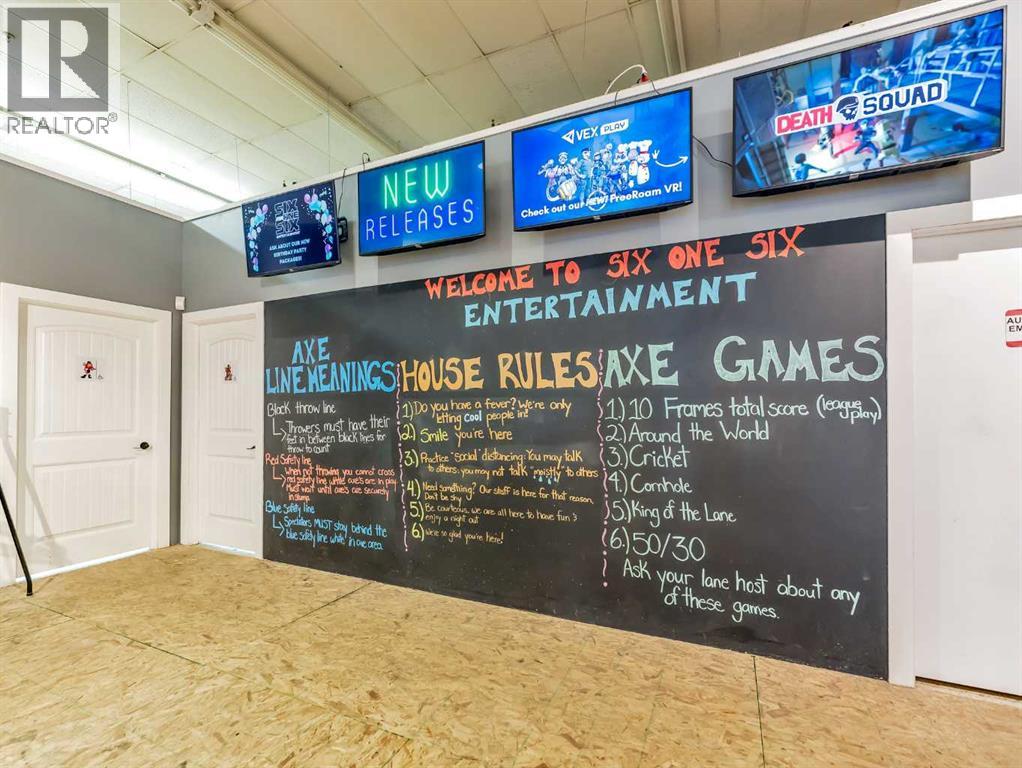 REALTOR®
SIX
ONE
SIX
ENTERTAINMENT
ASK ABOUT OUR NEW
BIRTHDAY PARTY
PACKAGES!
NEW
RELEASES
VEX PLAY
Check out our NEW! FreeRoam VR!
DEATH SQUAD
WELCOME TO SIX ONE SIX
ENTERTAINMENT
AXE
LINE MEANINGS
Black throw line
Throwers must have their
feet in between black lines for
throw to count
Red Safety line
When not throwing you cannot cross
red safety line while axe's are in play.
Must wait until axe's are securely
in stump.
Blue Safety line
Spectators MUST stay behind the
blue safety line while in axe area.
HOUSE RULES
1.) Do you have a fever? We're only
letting cool people in!
2.) Smile you're here
3.) Practice "social" distancing: You may talk
to others; you may not talk "moistly" to others
4.) Need something? Our staff is here for that reason,
Don't be shy
5.) Be courteous, we are all here to have fun &
enjoy a night out
6.) We're so glad you're here!
AXE GAMES
1.) 10 Frames total score (league
play)
2.) Around the World
3.) Cricket
4.) Cornhole
5.) King of the Lane
6.) 50/30
Ask your lane host about any
of these games.
AU
EM